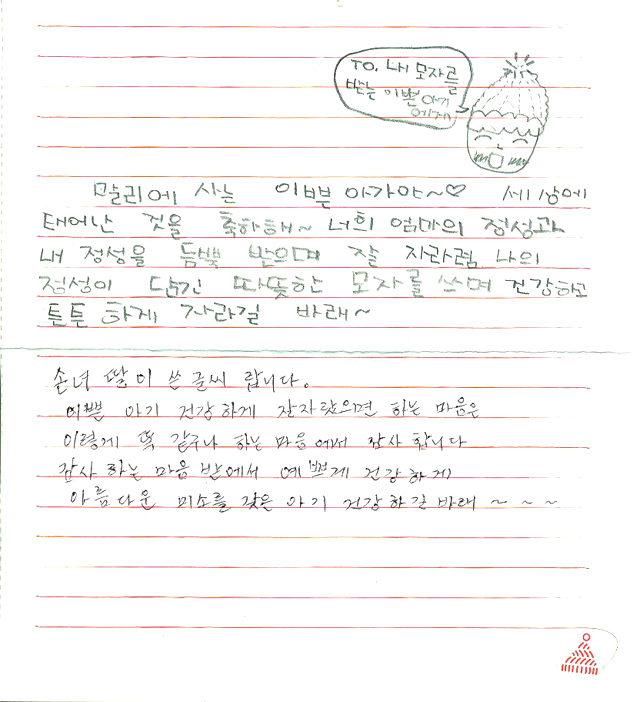 TO. 내 모자를
받는 이쁜 아기
에게
말리에 사는 이쁜 아가야~♡ 세상에
태어난 것을 축하해~ 너희 엄마의 정성과
내 정성을 듬뿍 받으며 잘 자라렴 나의
정성이 담긴 따뜻한 모자를 쓰며 건강하고
튼튼 하게 자라길 바래~
손녀 딸이 쓴 글씨 랍니다.
이쁜 아기 건강하게 잘자랐으면 하는 마음은
이렇게 똑 같구나 하는 마음에서 감사 합니다
감사 하는 마음 반에서 예쁘게 건강하게
아름다운 미소를 갖은 아기 건강하길 바래 ~ ~ ~